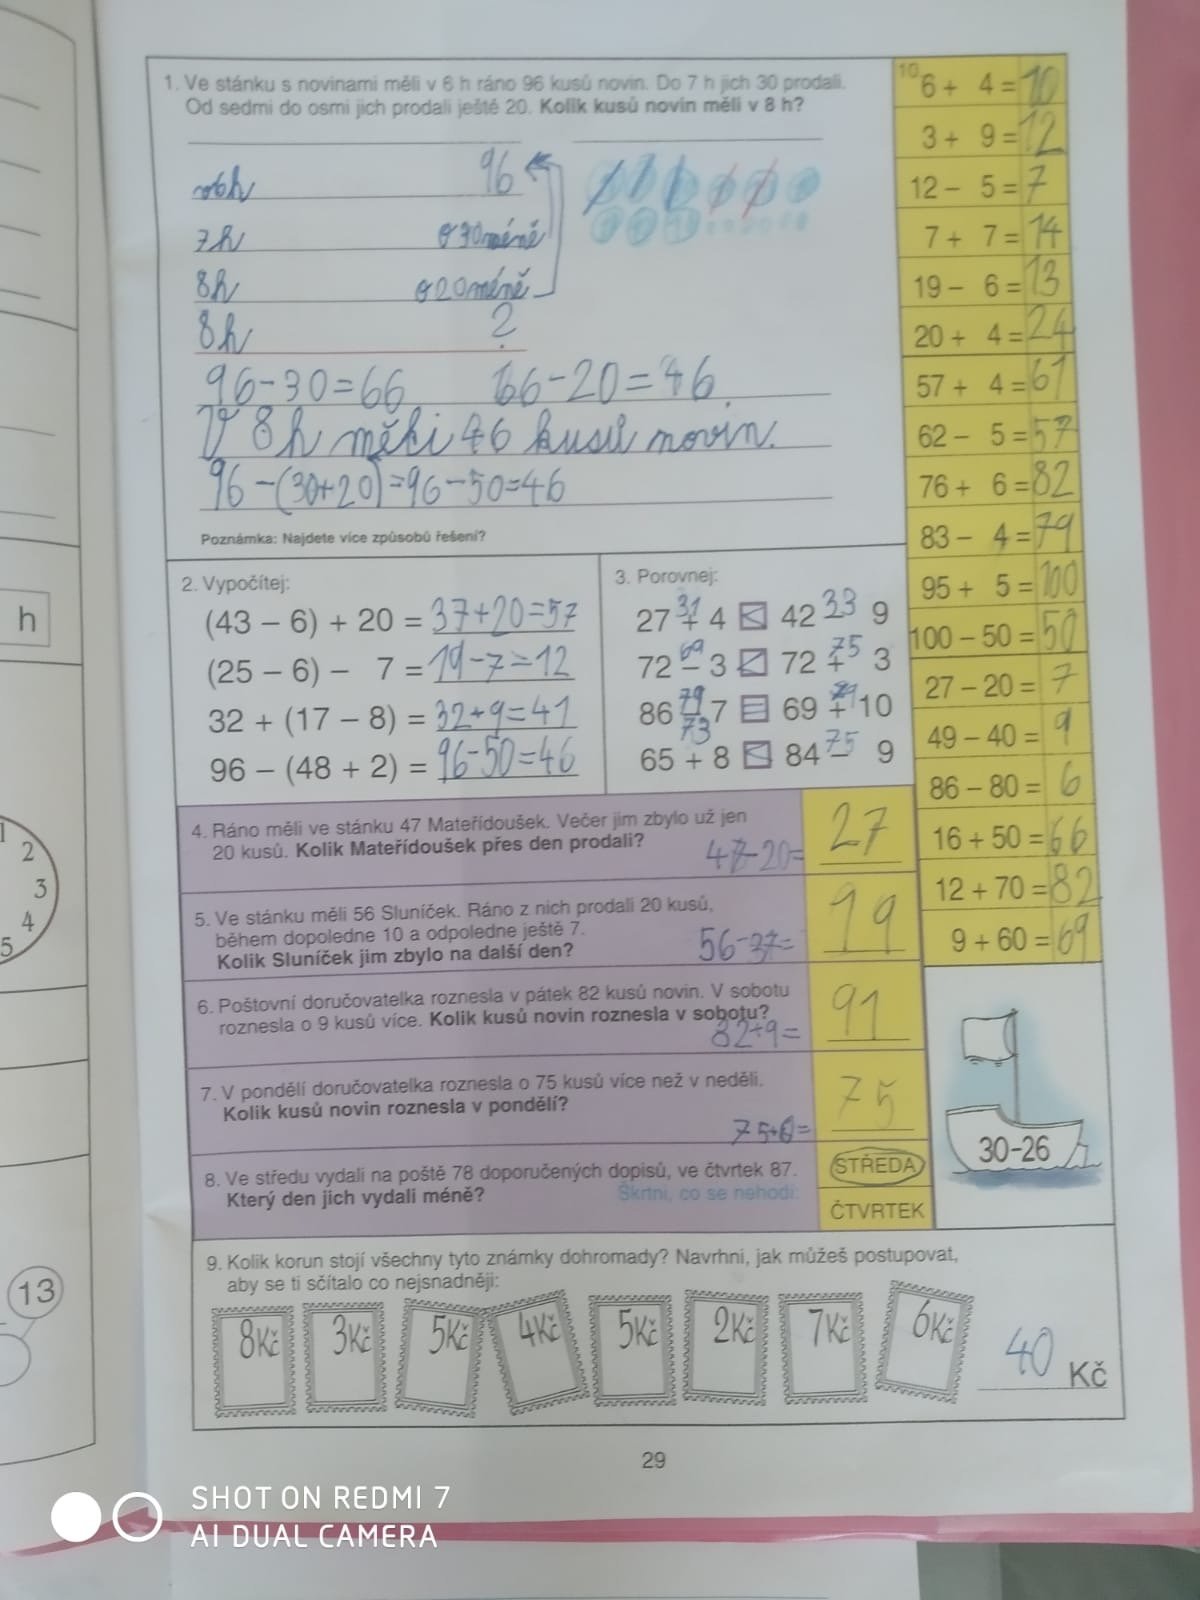 1. Ve stánku s novinami měli v 6 h ráno 96 kusů novin. Do 7 h jich 30 prodali.
Od sedmi do osmi jich prodali ještě 20. Kolik kusů novin měli v 8 h?
v 6h 96
7h o 30 méně
8h o 20 méně
8h ?
96-30=66 66-20=46
V 8h měli 46 kusů novin.
96-(30+20)=96-50=46
Poznámka: Najdete více způsobů řešení?
10.
6 + 4 = 10
3 + 9 = 12
12 - 5 = 7
7 + 7 = 14
19 - 6 = 13
20 + 4 = 24
57 + 4 = 61
62 - 5 = 57
76 + 6 = 82
83 - 4 = 79
95 + 5 = 100
100 - 50 = 50
27 - 20 = 7
49 - 40 = 9
86 - 80 = 6
16 + 50 = 66
12 + 70 = 82
9 + 60 = 69
2. Vypočítej:
(43 - 6) + 20 = 37+20=57
(25 - 6) - 7 = 19-7=12
32 + (17 - 8) = 32+9=41
96 - (48 + 2) = 96-50=46
3. Porovnej:
31 33
27 + 4 < 42 - 9
69 75
72 - 3 < 72 + 3
79 79
86 - 7 = 69 + 10
73 75
65 + 8 < 84 - 9
4. Ráno měli ve stánku 47 Mateřídoušek. Večer jim zbylo už jen
20 kusů. Kolik Mateřídoušek přes den prodali?
47-20= 27
5. Ve stánku měli 56 Sluníček. Ráno z nich prodali 20 kusů,
během dopoledne 10 a odpoledne ještě 7.
Kolik Sluníček jim zbylo na další den?
56-37= 19
6. Poštovní doručovatelka roznesla v pátek 82 kusů novin. V sobotu
roznesla o 9 kusů více. Kolik kusů novin roznesla v sobotu?
82+9= 91
7. V pondělí doručovatelka roznesla o 75 kusů více než v neděli.
Kolik kusů novin roznesla v pondělí?
75+0= 75
8. Ve středu vydali na poště 78 doporučených dopisů, ve čtvrtek 87.
Který den jich vydali méně? Škrtni, co se nehodí:
STŘEDA
ČTVRTEK
30-26
9. Kolik korun stojí všechny tyto známky dohromady? Navrhni, jak můžeš postupovat,
aby se ti sčítalo co nejsnadněji:
8Kč 3Kč 5Kč 4Kč 5Kč 2Kč 7Kč 6Kč
40 Kč
29
h
1
2
3
4
5
13
SHOT ON REDMI 7
AI DUAL CAMERA